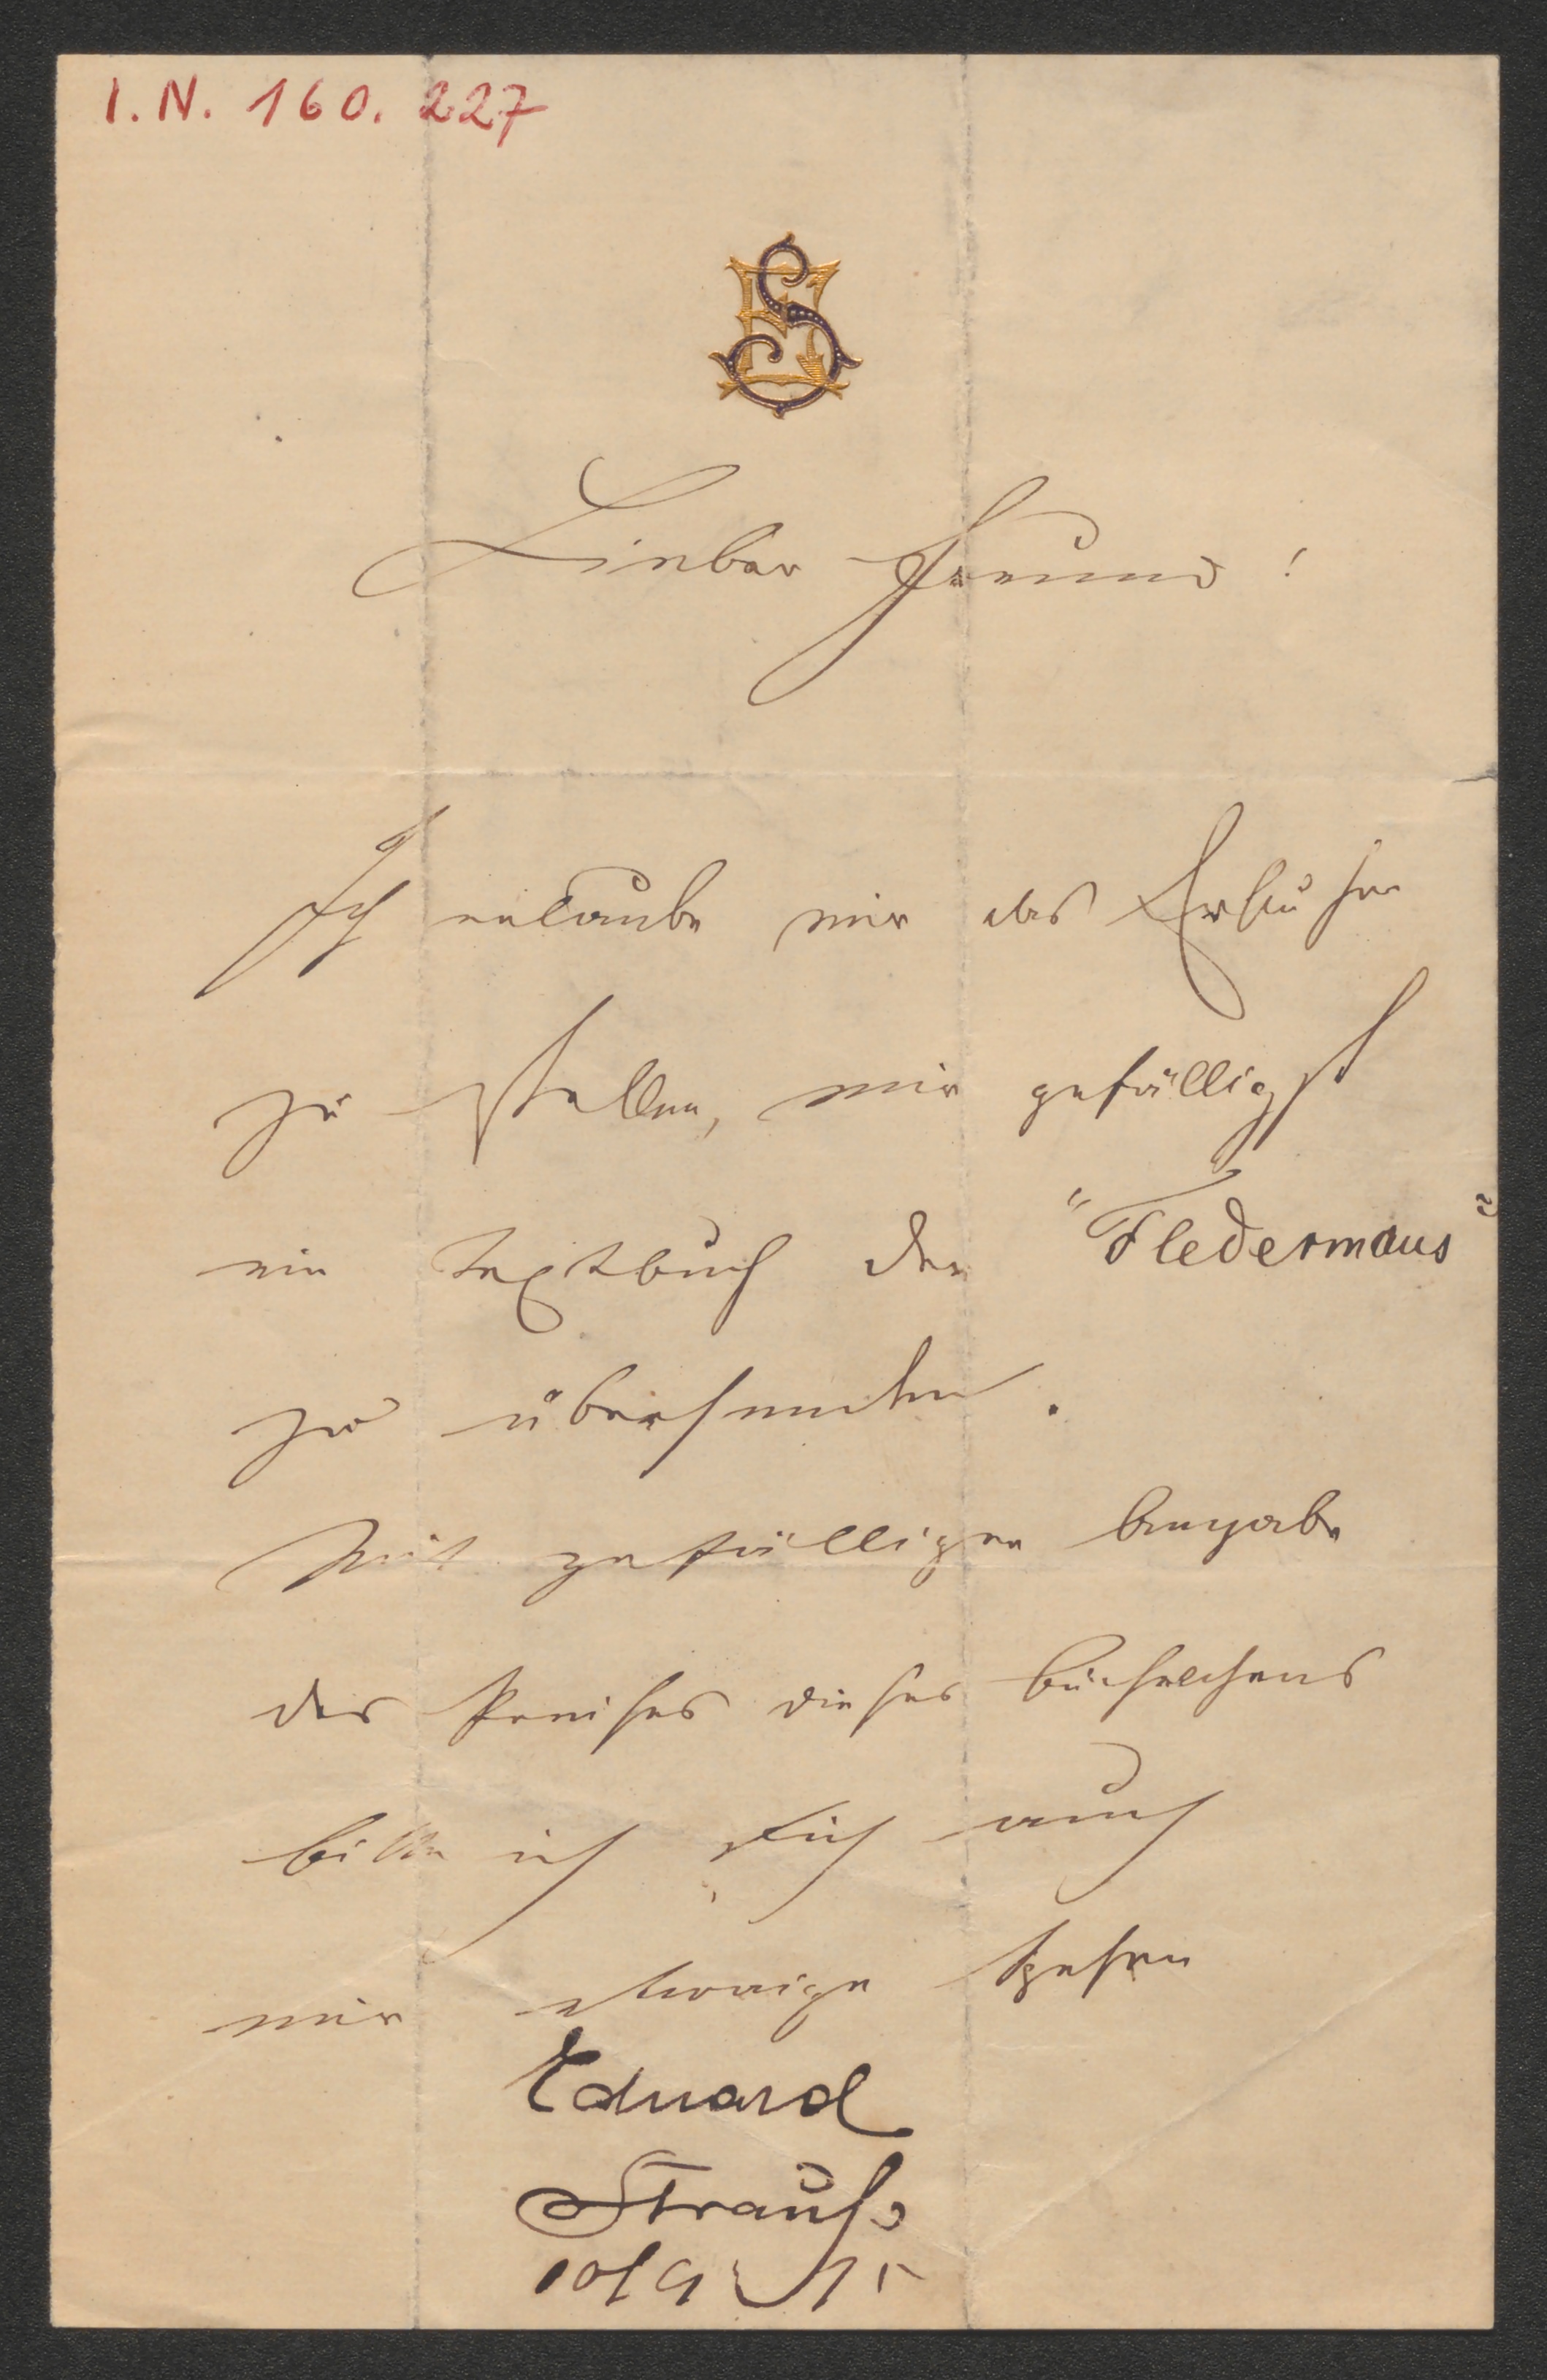 I.N. 160.227
ES
Lieber Freund!
Ich erlaube mir das Ersuchen
zu stellen, mir gefälligst
ein Textbuch der "Fledermaus"
zu übersenden.
Mit gefälliger Angabe
des Preises dieses Büchelchens
bitte ich Dich auch
mir etwaige Spesen
Eduard
Strauß